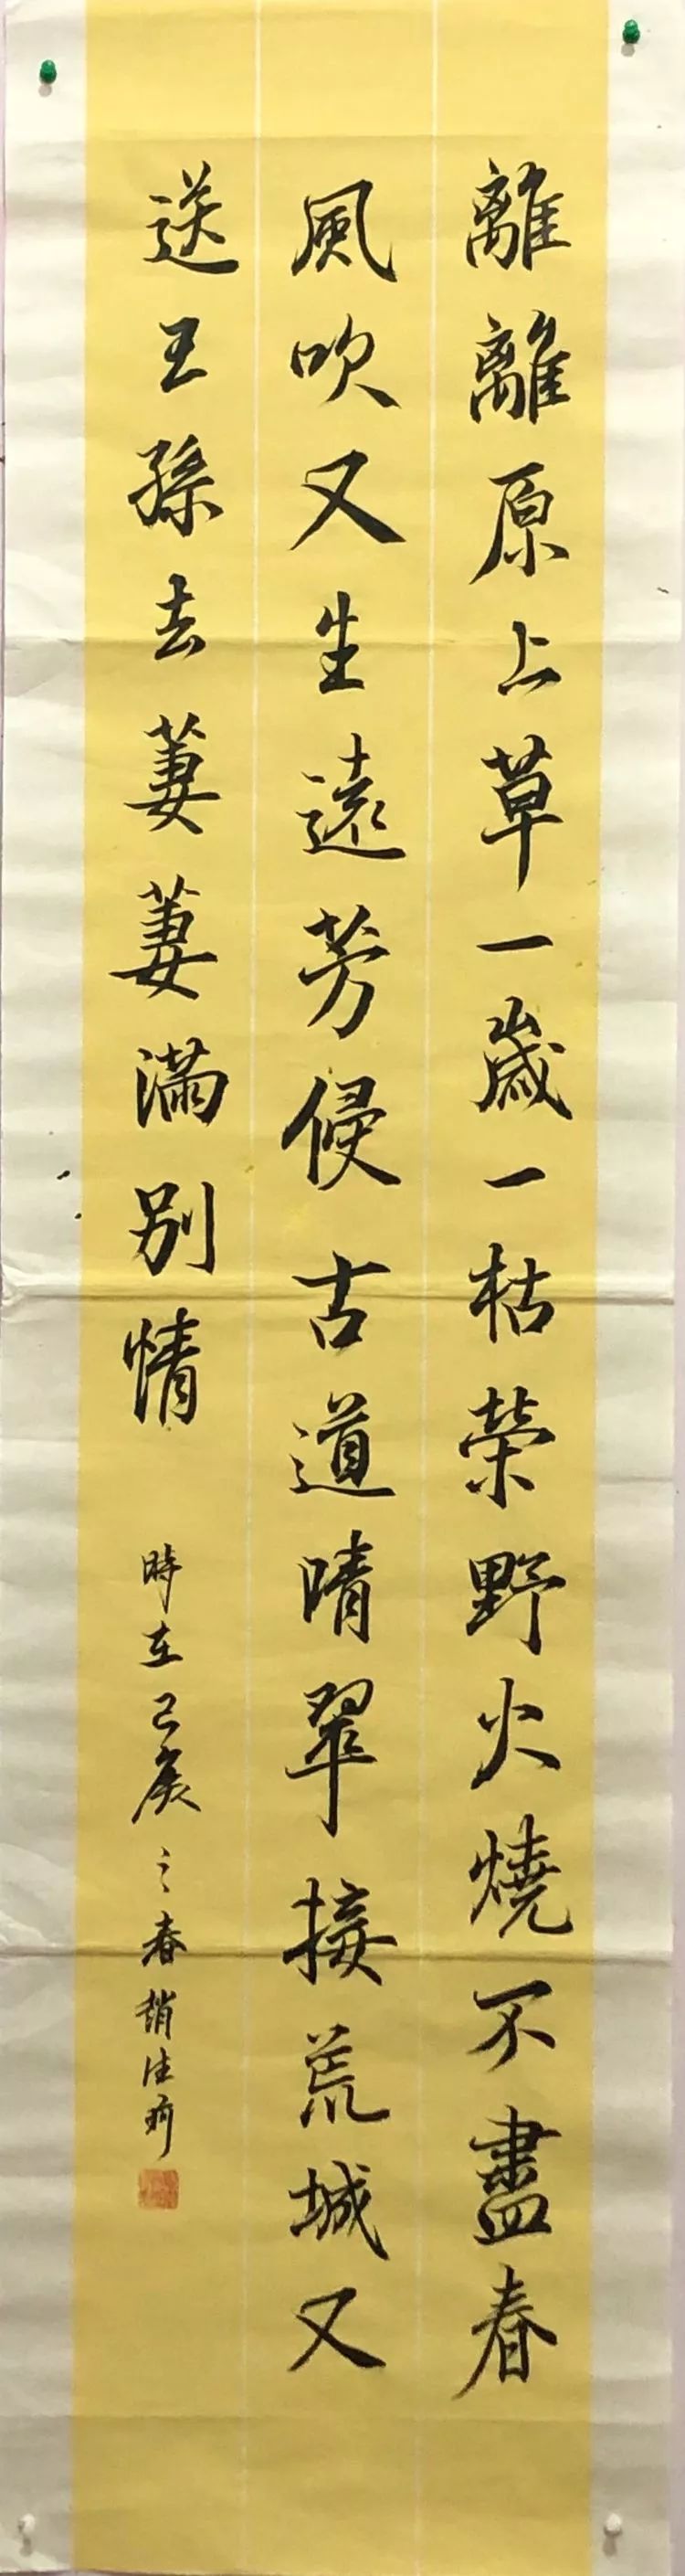 離離原上草一歲一枯榮野火燒不盡春
風吹又生遠芳侵古道晴翠接荒城又
送王孫去萋萋滿別情
時在己亥之春趙佳